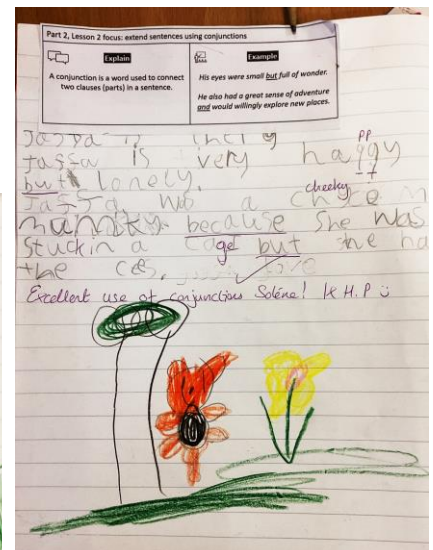 Part 2, Lesson 2 focus: extend sentences using conjunctions
Explain
A conjunction is a word used to connect
two clauses (parts) in a sentence.
Example
His eyes were small but full of wonder.
He also had a great sense of adventure
and would willingly explore new places.
Jaffa is
pp
Jaffa is very haggy
but Lonely.
cheeky
Jaffa was a
because She was
Stuck in a caget but she ha
the
Excellent use of conjunctions Solène! 1x H.P